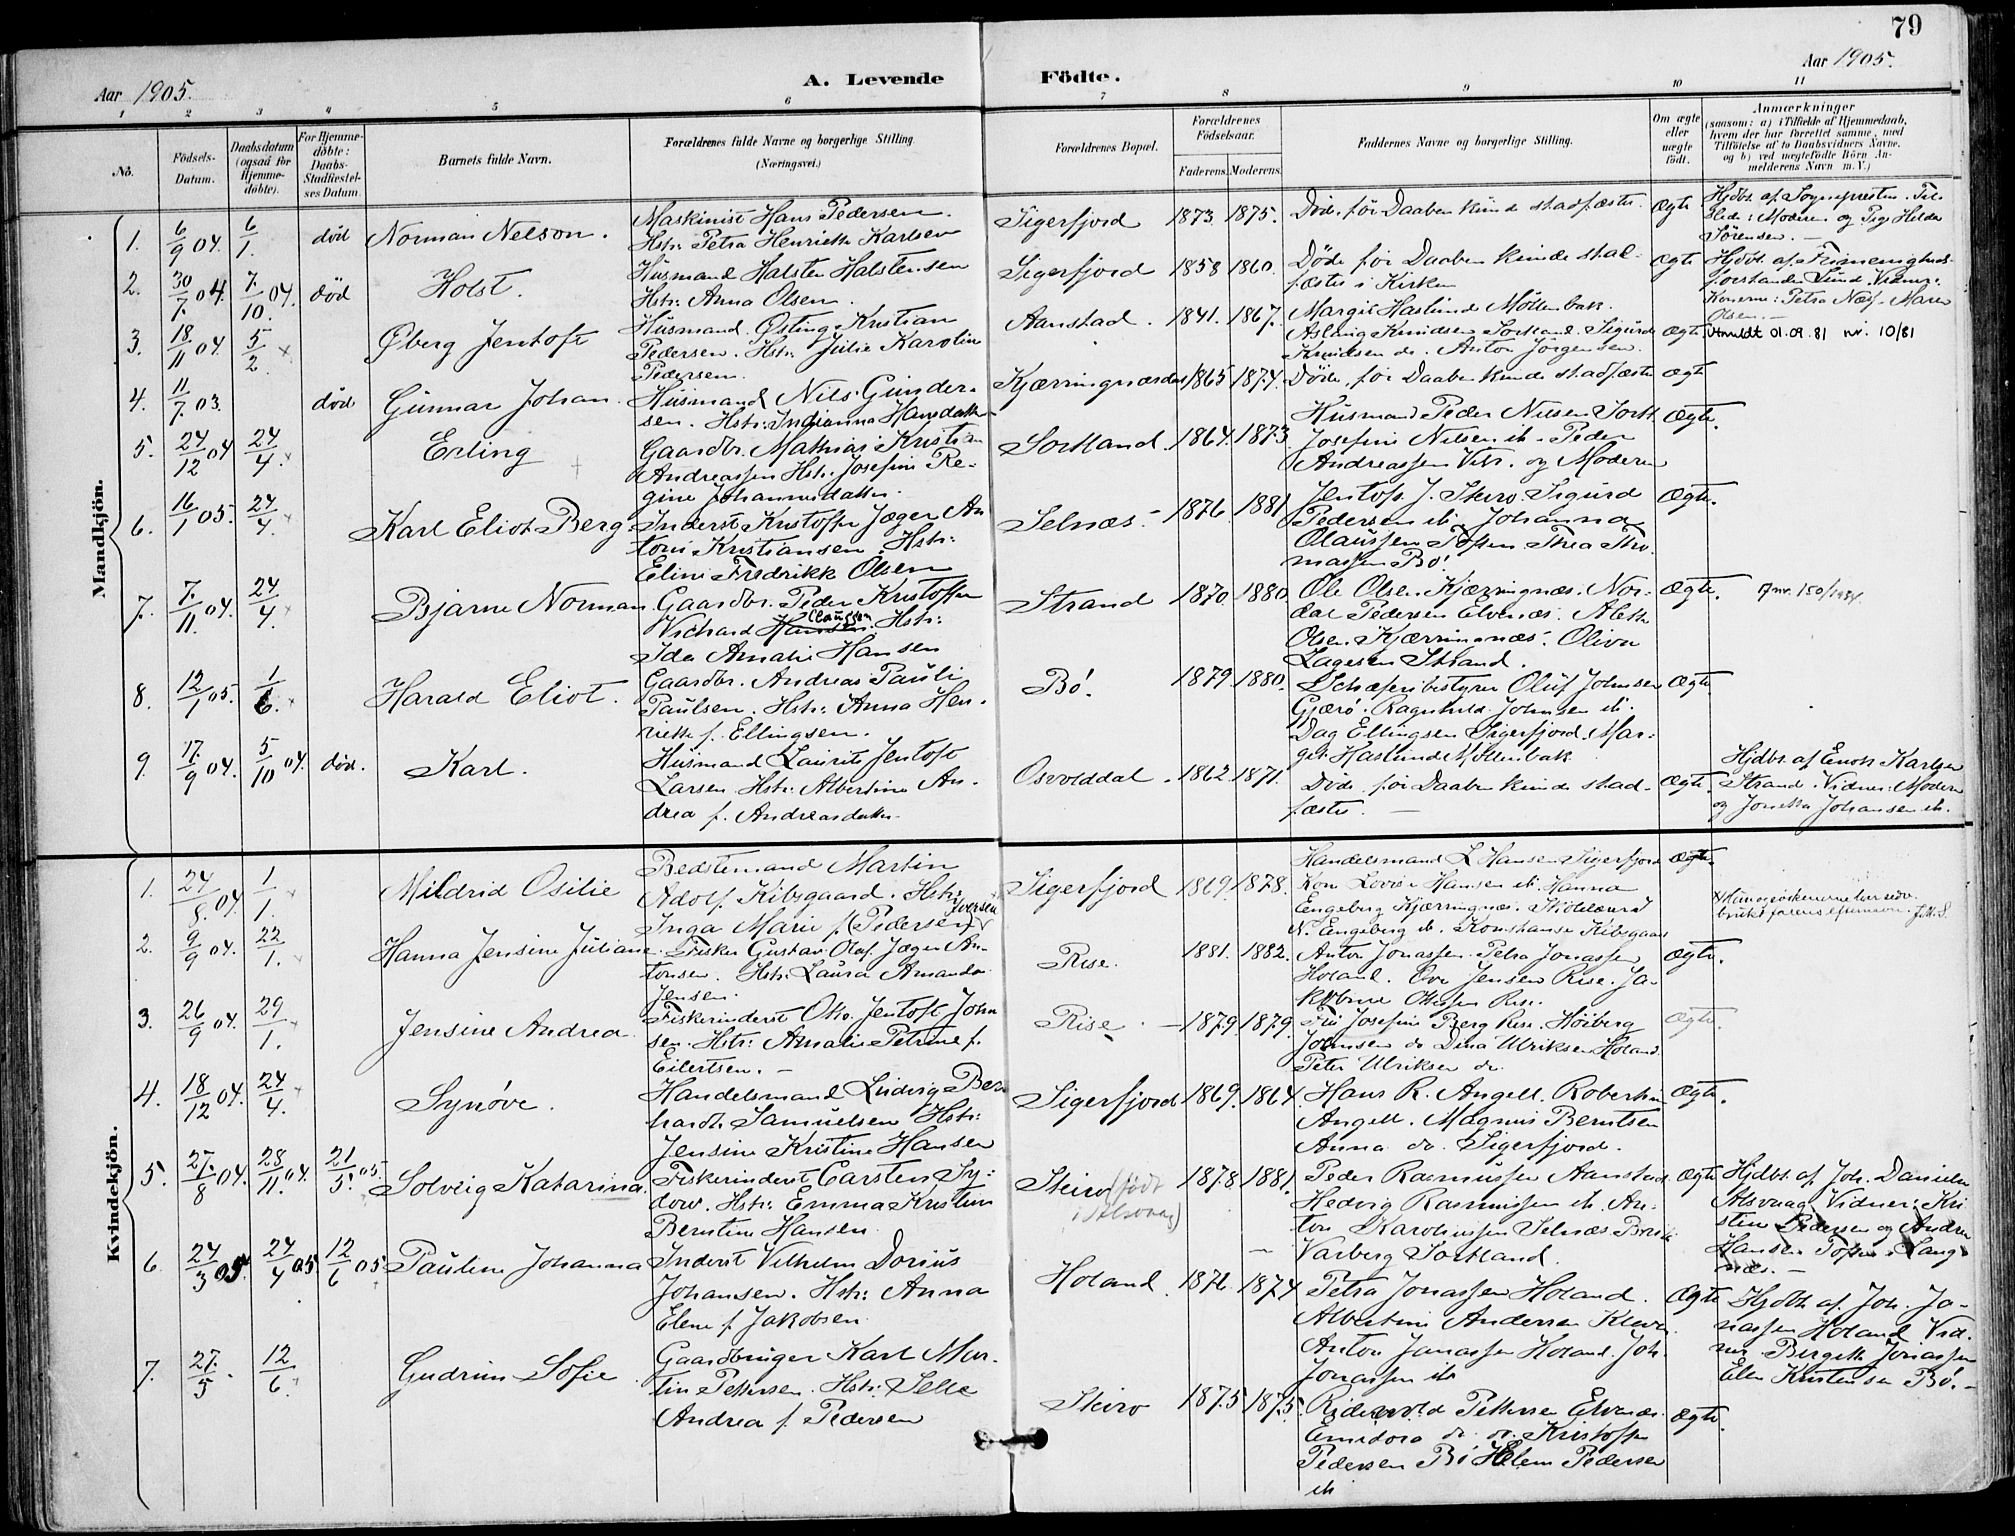 79
Aar 1905.
A. Levende Fødte.
Aar 1905.
1 2 3 4 5 6 7 8 9 10 11
No.
Fødsels-Datum.
Daabsdatum (ogsaa for Hjemme-døbte).
For Hjemme-døbte: Daabs-Stadfæstel-ses Datum.
Barnets fulde Navn.
Forældrenes fulde Navne og borgerlige Stilling.
(Næringsvei.)
Forældrenes Bopæl.
Forældrenes Fødselsaar.
Faderens. Moderens.
Faddernes Navne og borgerlige Stilling.
Om ægte eller uægte født.
Anmærkninger
(saasom: a) i Tilfælde af Hjemmedaab,
hvem der har forrettet samme, med
Tilføielse af to Daabsvidners Navne,
og b) ved uægtefødte Børn An-
melderens Navn m. V.)
Mandkjön.
1. 6/9 04. 6/1. død Norman Nelson.
Maskinist Hans Pedersen.
Hstr: Petra Henriette Karlsen
Sigerfjord 1873. 1875.
Døde før Daaben kunde stadfæstes. Ægte
Hjdbt. af Sognepresten. Til-
stede: Moderen og Pig Helda
Sørensen.
2. 30/7. 04. 7/10. 04. død Holst.
Husmand Halsten Halstensen
Hstr: Anna Olsen.
Sigerfjord 1858 1860.
Døde før Daaben kunde stad-
fæstes i Kirken Ægte
Hjdbt. af
forstander Lund. Vidner:
Konerne: Petra Næss. Maren
Olsen.
3. 18/11 04. 5/2. Øberg Jentoft
Husmand Østing Kristian
Pedersen. Hstr: Julie Karoline
Pedersen.
Aanstad. 1841. 1867.
Margit Haslund Møllenbak.
Aslaug Knudsen Sortland. Sigurd
Knudsen do. Anton Jørgensen. Ægte
Utmeldt 01.09.81 nr. 10/81
4. 11/7 03. død Gunnar Johan.
Husmand Nils Gunder-
sen. Hstr: Indianna Hansdatter
Kjærringnæsdal 1865 1874.
Døde før Daaben kunde stadfæstes Ægte
5. 24/12 04 24/4. Erling
Gaardbr. Mathias Kristian
Andreassen Hstr: Josefine Re-
gine Johannesdatter.
Sortland. 1864. 1873
Husmand Peder Nilsen Sortl.
Josefine Nilsen ib. Peder
Andreassen Vik. og Moderen Ægte.
6. 16/1 05. 24/4. Karl Eliot Berg.
Inderst Kristoffer Jæger An
toni Kristiansen. Hstr:
Eline Fredrikke Olsen
Selnæs. 1876. 1881
Jentoft J. Steiro. Sigurd
Pedersen ib. Johanna
Olaussen Toften. Thea Tho-
massen Bø. Ægte.
7. 7/11. 04. 24/4. Bjarne Norman
Gaardbr. Peder Kristoffer
Wichard Hansen Claussen. Hstr:
Ida Amalie Hansen
Strand 1870. 1880.
Ole Olsen Kjærringnæs. Nor-
dal Pedersen Elvenæs. Alette
Olsen Kjærringnæs. Oliva
Lagesen Strand. Ægte.
8. 12/1 05. 1/6. Harald Eliot.
Gaardbr. Andreas Pauli
Paulsen. Hstr: Anna Hen-
riette f. Ellingsen.
Bø. 1879. 1880.
Schæferibestyrer Oluf Johnsen
Gjærø. Ragnhild Johnsen ib.
Dag Ellingsen Sigerfjord. Mar-
git Haslund Møllenbak Ægte.
9. 17./9 04. 5/10 04. død. Karl.
Husmand Laurits Jentoft
Larsen Hstr: Albertine An-
drea f. Andreasdatter.
Osvolddal. 1862. 1871.
Døde før Daaben kunde stad-
fæstes. Ægte.
Hjdbt. af Enok Karlsen
Strand. Vidner: Moderen
og Jonetta Johansen ib.
Kvindekjön.
1. 24/8. 04. 1/1. Mildrid Osilie
Bedstemand Martin
Adolf Kibsgaard. Hstr:
Inga Marie f. (Pedersen) Iversen
Sigerfjord 1869. 1878.
Handelsmand L Hansen Sigerfjord
Kone Lovise Hansen ib. Hanna
Engeberg Kjærringnæs.
N. Engeberg ib. Konstanse Kibsgaard Ægte.
2. 9/9 04. 22/1. Hanna Jensine Juliane.
Fisker Gustav Olaf Jæger An-
tonsen. Hstr: Laura Amanda
Jensen.
Rise. 1881. 1882.
Anton Jonassen. Petra Jonassen
Holand. Ove Jensen Rise. Ja-
kobine Ottesen Rise. Ægte.
3. 26/9 04. 29/1. Jensine Andrea
Fiskerinderst Otto Jentoft John
sen. Hstr: Amalie Petrine f.
Eilertsen.
Rise. 1879. 1879.
Fru Josefine Berg Rise. Høiberg
Johnsen do Dina Ulriksen Holand.
Peter Ulriksen do. Ægte.
4. 18/12 04. 24/4. Synøve.
Handelsmand Ludvig Ber
hardt Samuelsen Hstr:
Jensine Kristine Hansen
Sigerfjord 1869. 1864.
Hans R. Angell. Robertine
Angell. Magnus Berntsen
Anna do. Sigerfjord. Ægte.
5. 27./8 04. 28/11. 04. 21/5. 05. Solveig Katarina.
Fiskerinderst Carsten Sy-
dow. Hstr: Emma Kristine
Berntine Hansen
Steiro (født
i Alsvaag) 1878 1881.
Peder Rasmussen Aanstad
Hedvig Rasmussen ib. An-
ton Karolinssen Selnæs.
Varberg Sortland. Ægte
Hjdbt. af Joh. Danielsen
Alsvaag. Vidner: Kri
stine Pedersen og Andrea
Hansen Toften Lang-
næs.
6. 24/3 05. 24/4 05. 12/6 05 Pauline Johanna
Inderst Vilhelm Dorius
Johansen. Hstr: Anna
Elene f. Jakobsen.
Holand. 1876. 1874
Petra Jonassen Holand.
Albertine Andersen
Anton Jonassen Holand. Joh.
Jonassen ib Ægte
Hjdbt. af Joh. Jo-
nassen Holand Vid-
ner Bergitte Jonassen
Elen Kristensen Bø.
7. 27./5. 12/6. Gudrun Sofie
Gaardbruger Karl Mar-
tin Pettersen. Hstr: Selle
Andrea f. Pedersen
Steiro 1875 1875.
Petterse Elvenæs.
Emidora do. do. Kristoffer
Pedersen Bø Helene Pedersen
ib Ægte.